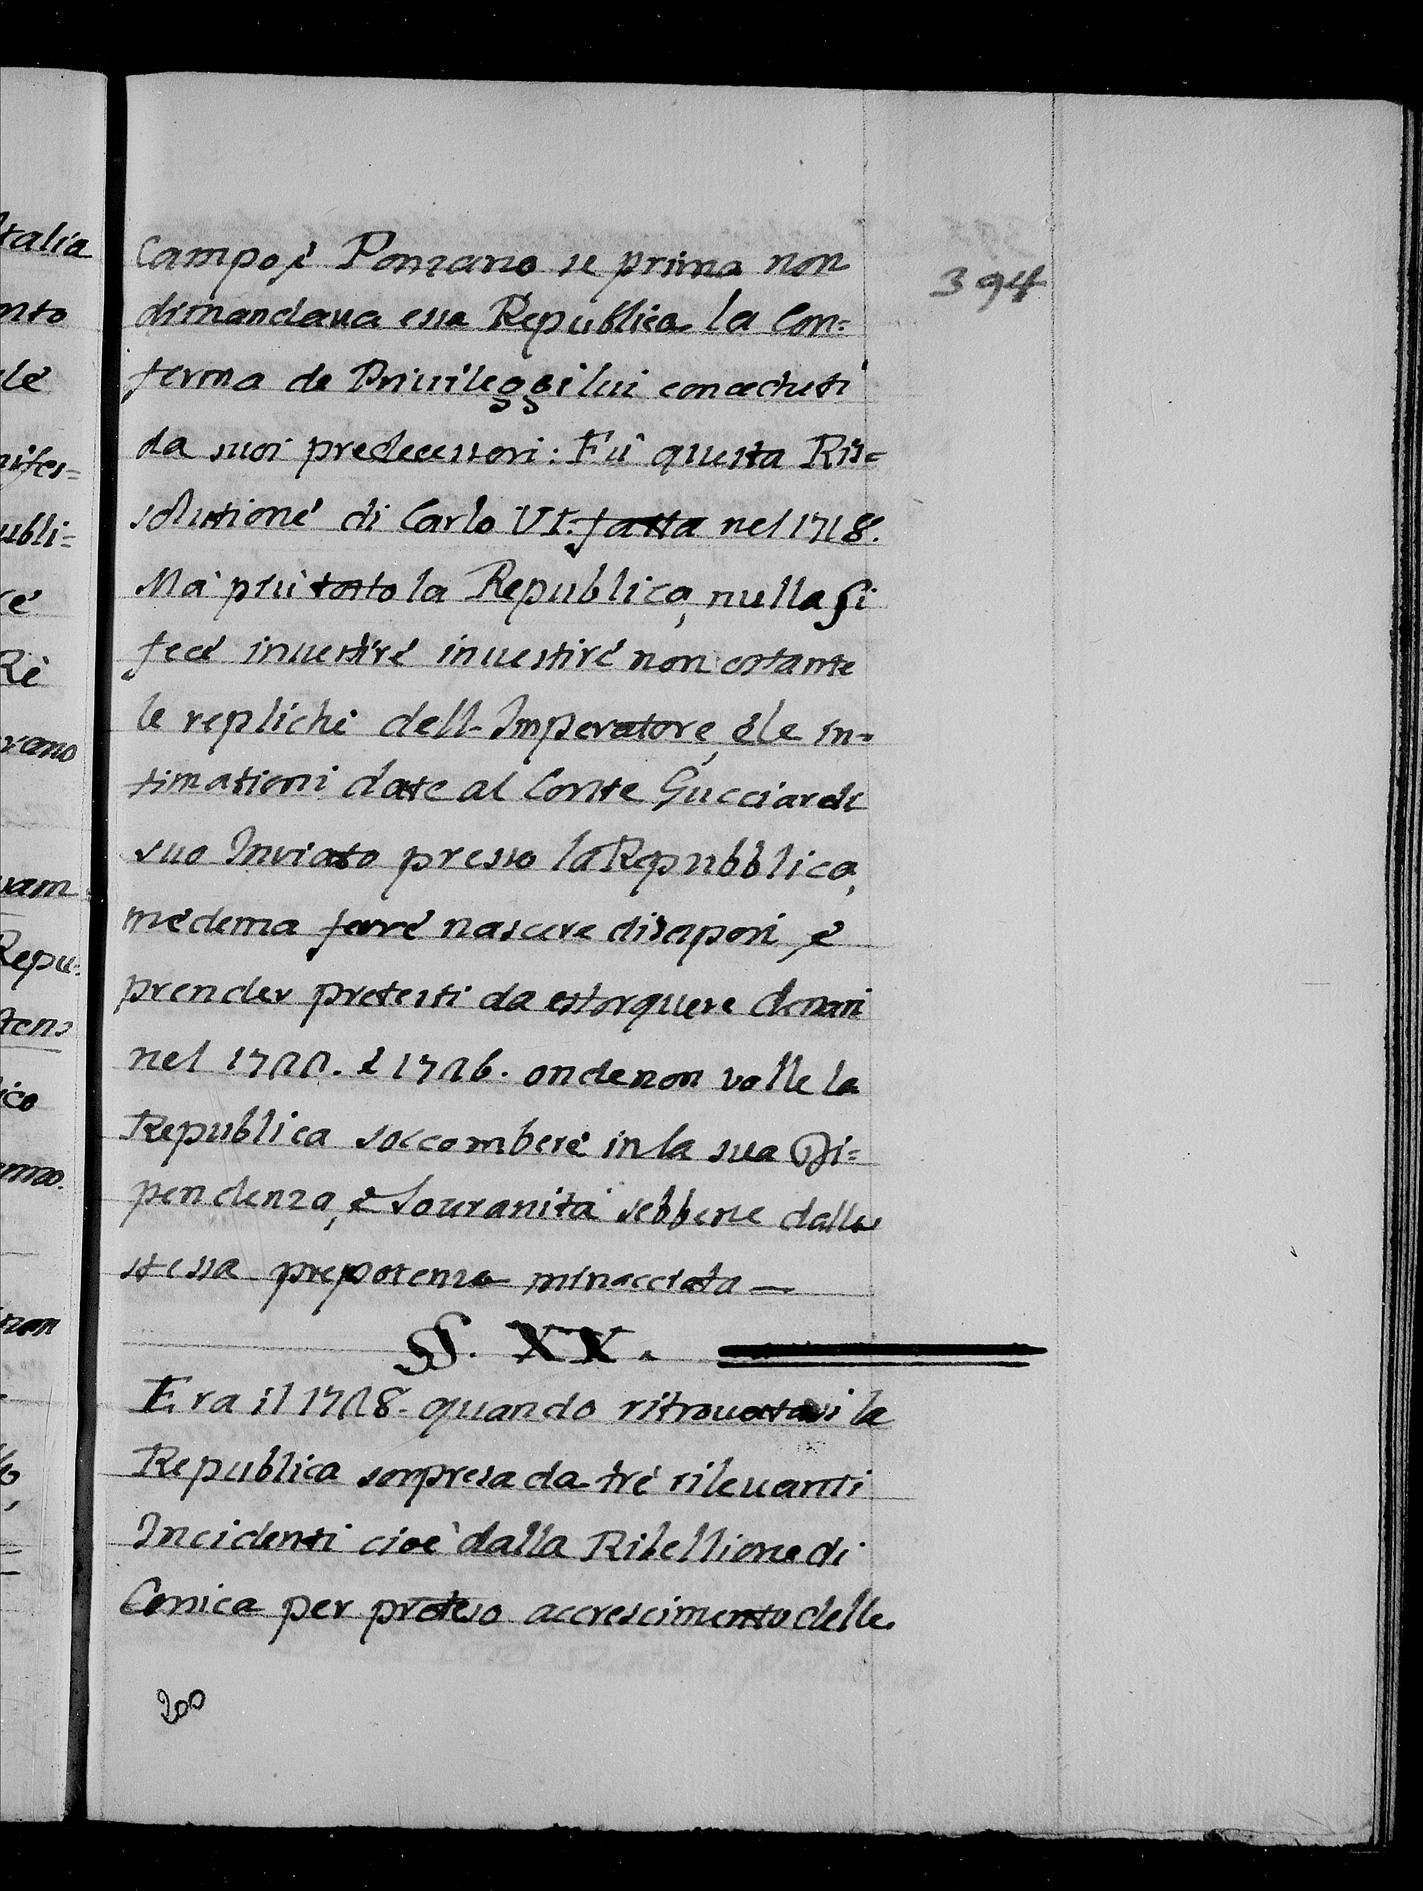 Campo, è Ponzano se prima non
394
dimandaua essa Republica la Con=
ferma de Priuileggi lui conceduti
da suoi predecessori: Fù questa Ris=
solutione di Carlo VI. fatta nel 1718.
Mà più tosto la Republica, nulla si
fece inuestire inuestire non ostante
le repliche dell-Imperatore, è le in=
timationi date al Conte Gucciardi
suo Inviato presso la Repubblica,
medema farne nascere disapori, è
prender pretesti da estorquere denari
nel 1722. è 1726. onde non volle la
Republica soccombere in la sua Di=
pendenza, è Souranità sebbene dalla
stessa prepotenza minacciata —
§. XX.
Era il 1728. quando ritrouatasi la
Republica sorpresa da trè rileuanti
Incidenti cioè dalla Ribellione di
Corsica per preteso accrescimento delle
200
talia
nto
le
nifes=
ubli=
ce
Rè
vano
uam
Repu=
ico